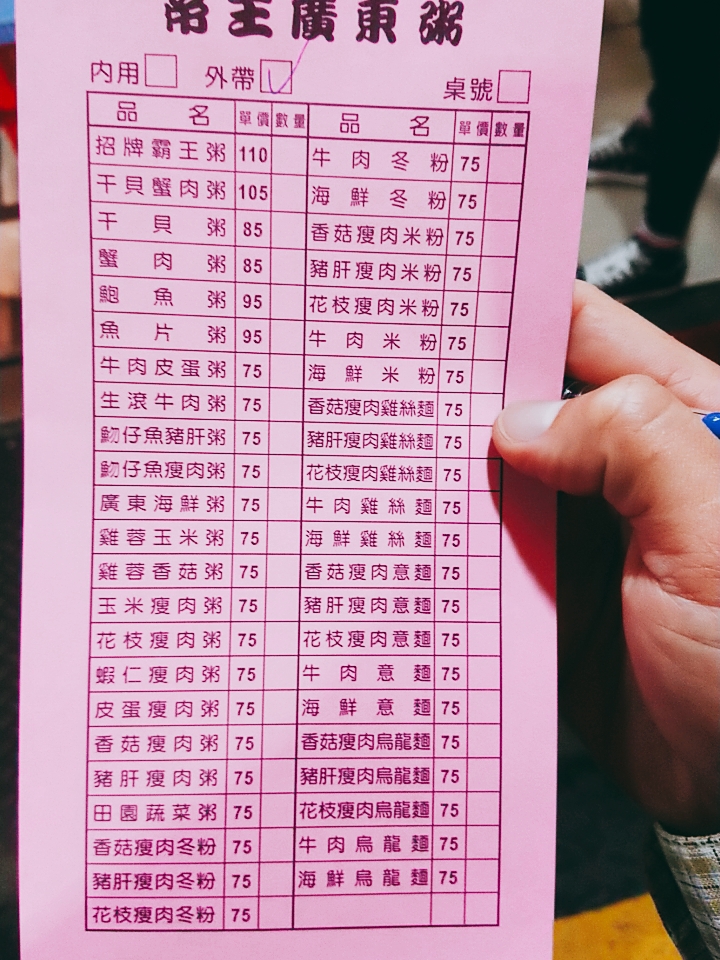 帝王廣東粥
內用 外帶 桌號
品名 單價 數量 品名 單價 數量
招牌霸王粥 110 牛肉冬粉 75
干貝蟹肉粥 105 海鮮冬粉 75
干貝粥 85 香菇瘦肉米粉 75
蟹肉粥 85 豬肝瘦肉米粉 75
鮑魚粥 95 花枝瘦肉米粉 75
魚片粥 95 牛肉米粉 75
牛肉皮蛋粥 75 海鮮米粉 75
生滾牛肉粥 75 香菇瘦肉雞絲麵 75
魩仔魚豬肝粥 75 豬肝瘦肉雞絲麵 75
魩仔魚瘦肉粥 75 花枝瘦肉雞絲麵 75
廣東海鮮粥 75 牛肉雞絲麵 75
雞蓉玉米粥 75 海鮮雞絲麵 75
雞蓉香菇粥 75 香菇瘦肉意麵 75
玉米瘦肉粥 75 豬肝瘦肉意麵 75
花枝瘦肉粥 75 花枝瘦肉意麵 75
蝦仁瘦肉粥 75 牛肉意麵 75
皮蛋瘦肉粥 75 海鮮意麵 75
香菇瘦肉粥 75 香菇瘦肉烏龍麵 75
豬肝瘦肉粥 75 豬肝瘦肉烏龍麵 75
田園蔬菜粥 75 花枝瘦肉烏龍麵 75
香菇瘦肉冬粉 75 牛肉烏龍麵 75
豬肝瘦肉冬粉 75 海鮮烏龍麵 75
花枝瘦肉冬粉 75